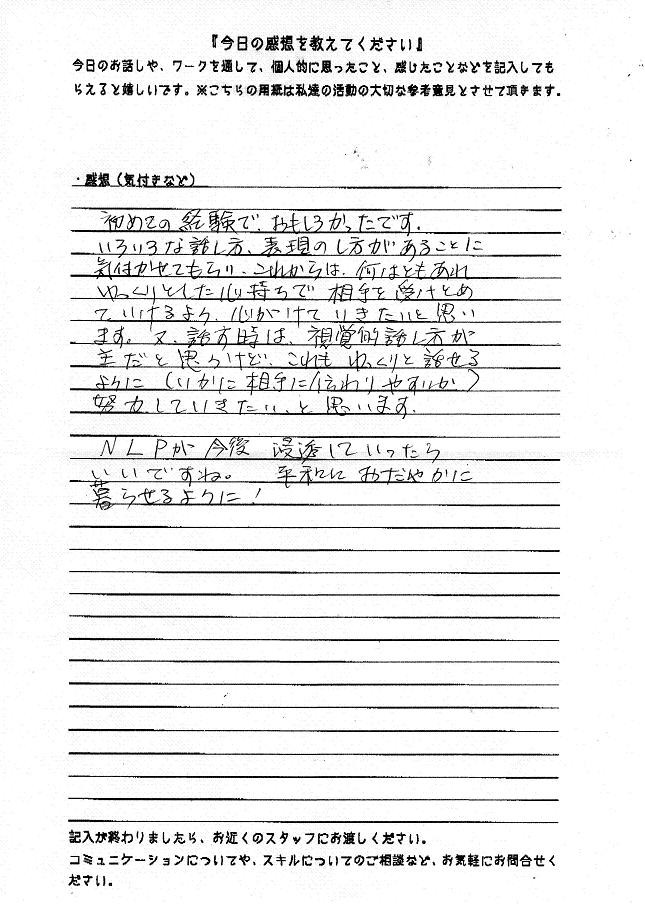 『今日の感想を教えてください』
今日のお話しや、ワークを通して、個人的に思ったこと、感じたことなどを記入しても
らえると嬉しいです。※こちらの用紙は私達の活動の大切な参考意見とさせて頂きます。
・感想（気付きなど）
初めての経験で、おもしろかったです。
いろいろな話し方、表現のし方があることに
気付かせてもらい、これからは、何はともあれ
ゆっくりとした心持ちで相手を受けとめ
ていけるよう、心がけていきたいと思い
ます。又、話す時は、視覚的話し方が
主だと思うけど、これもゆっくりと話せる
ように（いかに相手に伝わりやすいか）
努力していきたい、と思います。
NLPが今後浸透していったら
いいですね。平和におだやかに
暮らせるように！
記入が終わりましたら、お近くのスタッフにお渡しください。
コミュニケーションについてや、スキルについてのご相談など、お気軽にお問合せく
ださい。